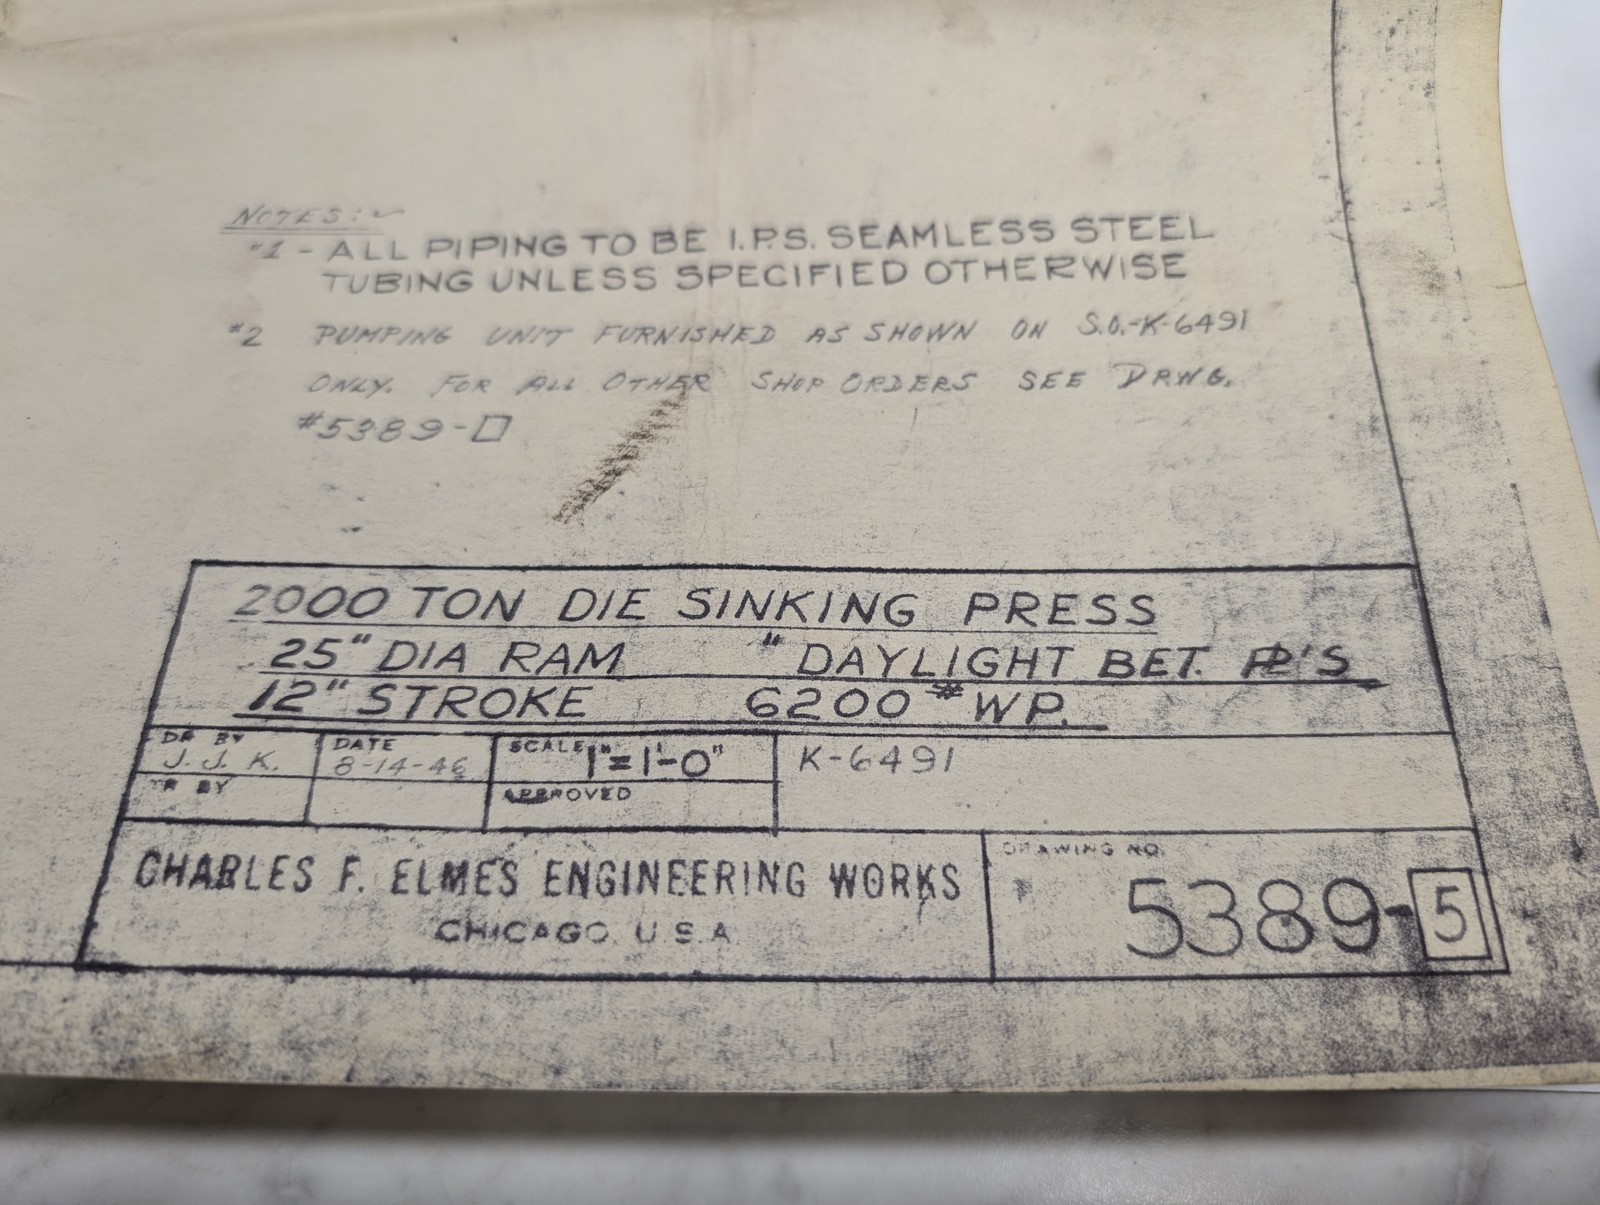 NOTES:~
#1 - ALL PIPING TO BE I.P.S. SEAMLESS STEEL
TUBING UNLESS SPECIFIED OTHERWISE
#2 PUMPING UNIT FURNISHED AS SHOWN ON S.O.-K-6491
ONLY. FOR ALL OTHER SHOP ORDERS SEE DRWG.
#5389-□
2000 TON DIE SINKING PRESS
25" DIA RAM " DAYLIGHT BET. PL'S
12" STROKE 6200# WP.
DR BY
J. J. K.
DATE
8-14-46
SCALE
1"=1'-0"
K-6491
TR BY
APPROVED
CHARLES F. ELMES ENGINEERING WORKS
CHICAGO. U.S.A.
DRAWING NO.
5389-5